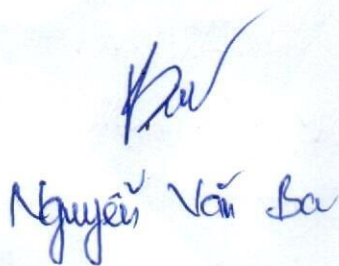 Nguyễn Văn Ba